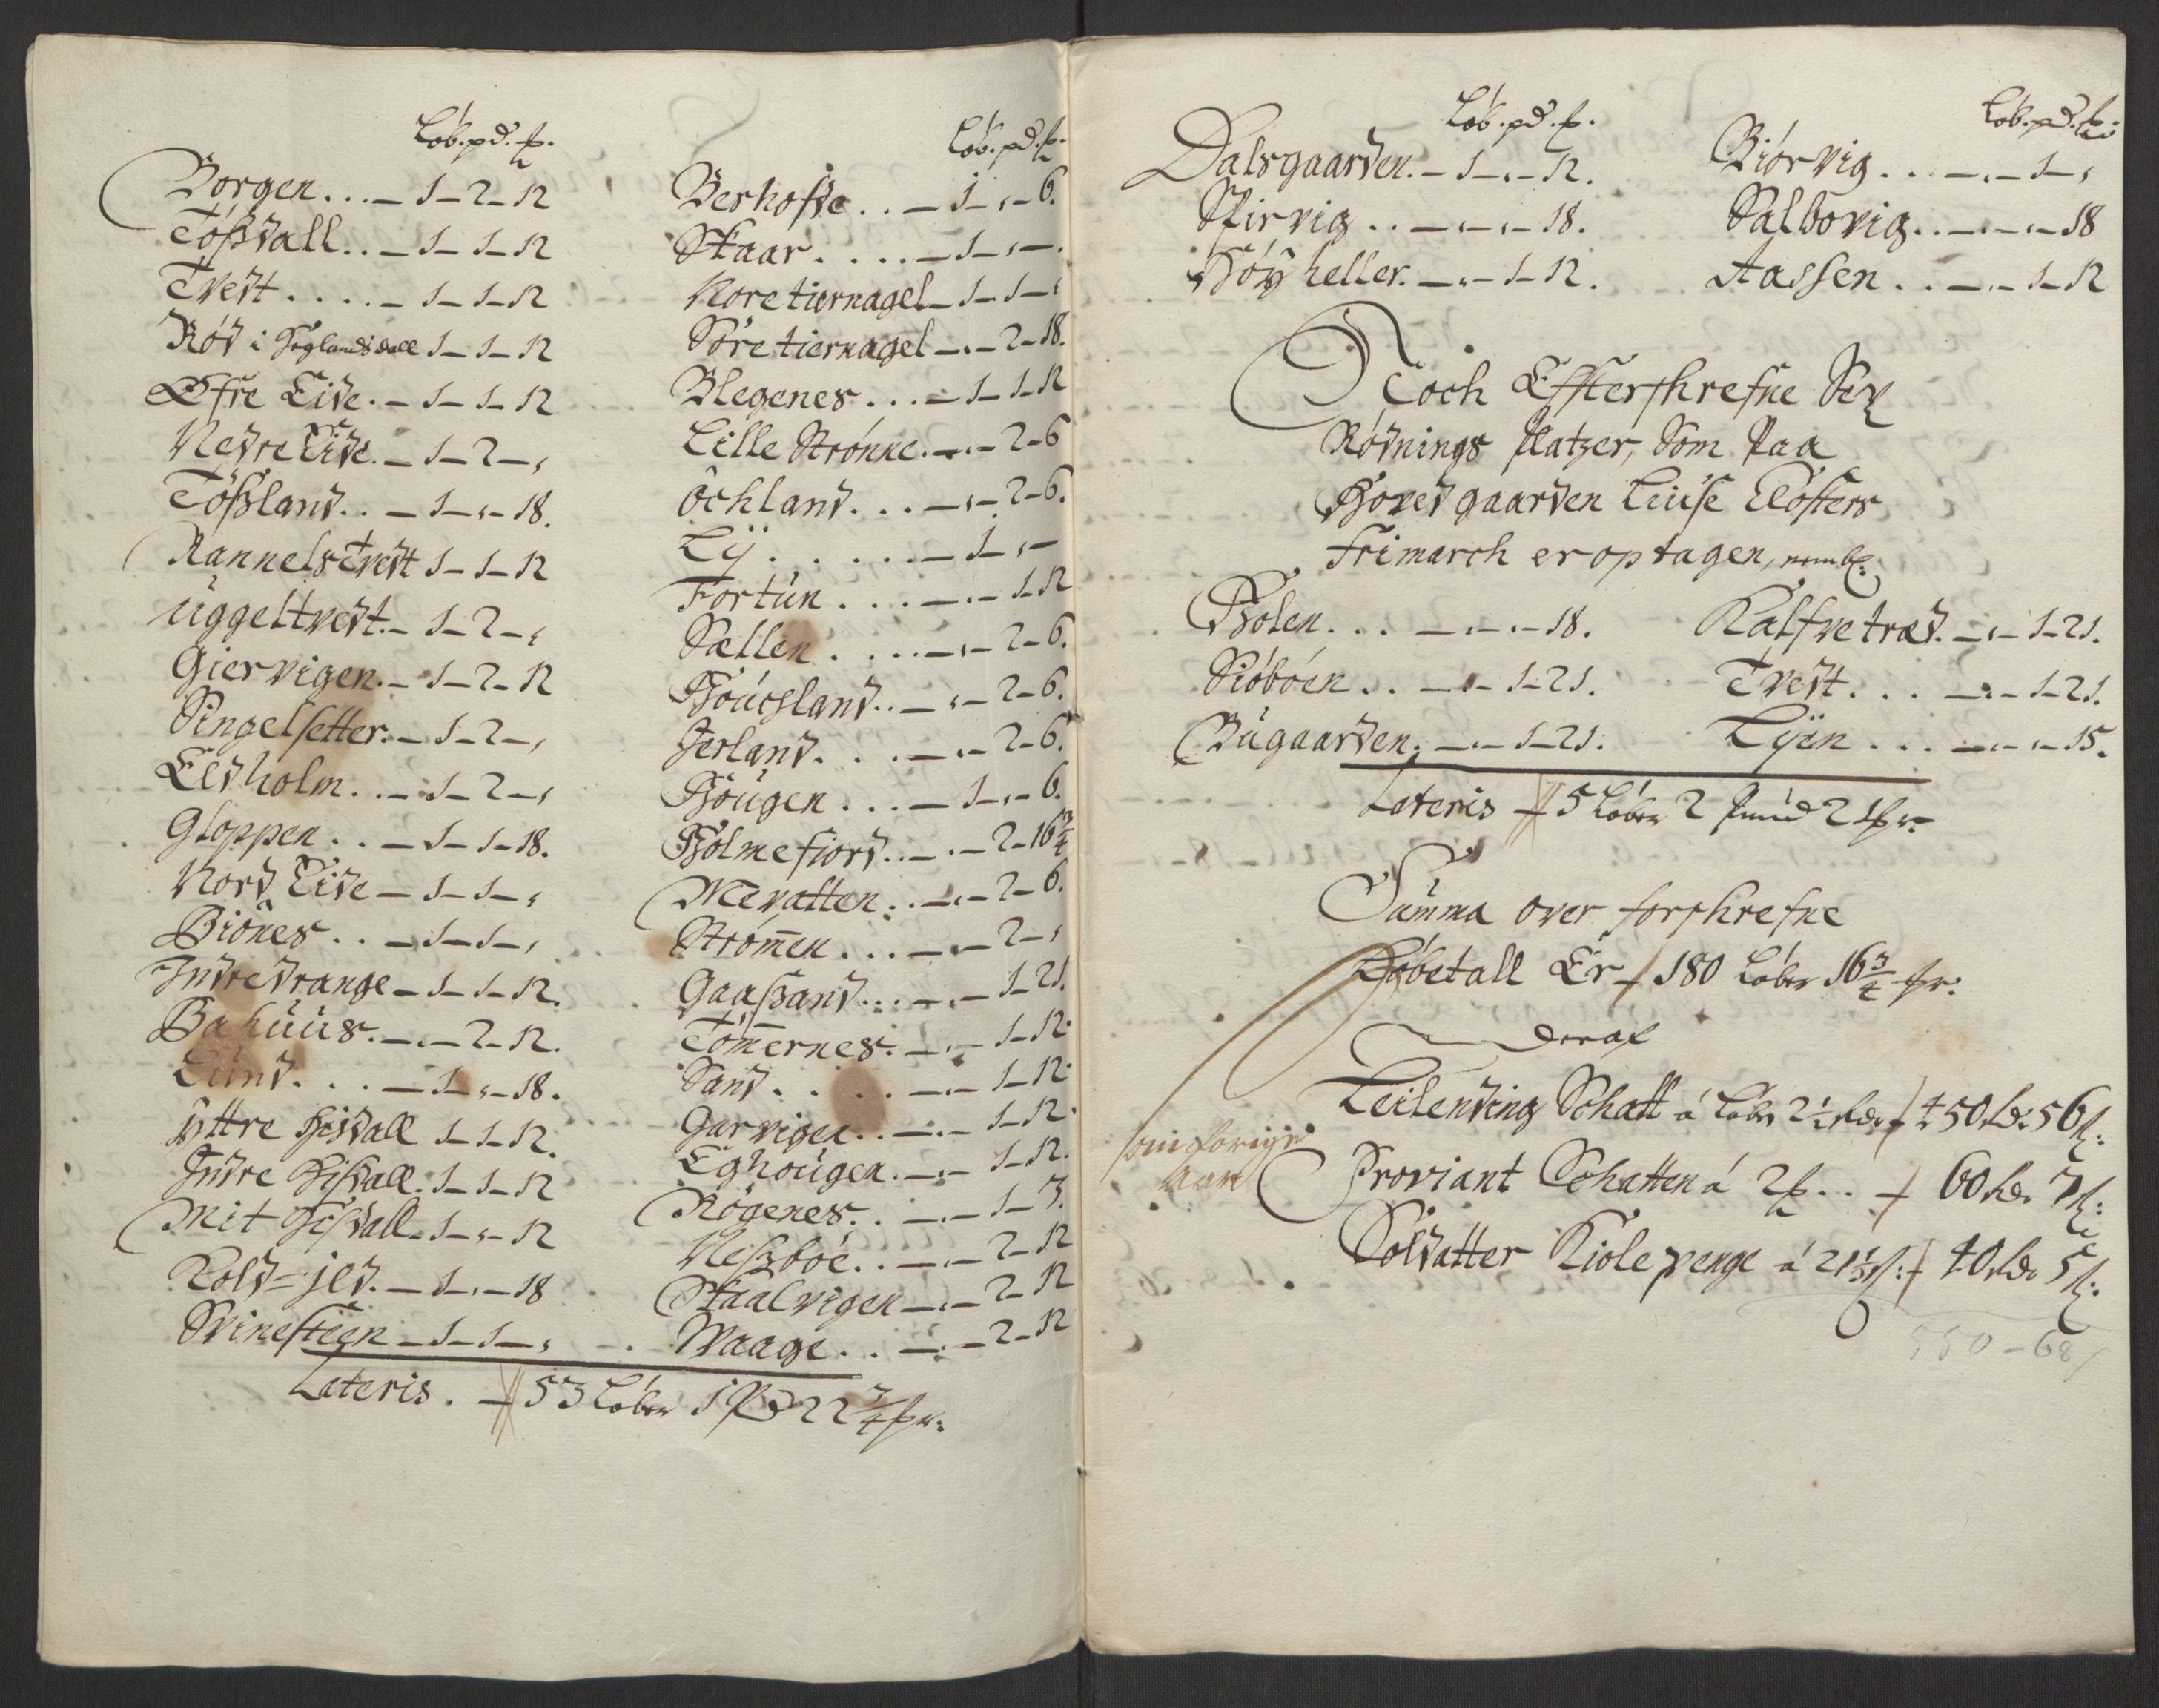 Löb. pd. ℔.
Borgen . . . — 1 — 2 — 12
Tößdall . . — 1 — 1 — 12
Tvedt . . . . — 1 — 1 — 12
Röd i Hoglandsdall 1 — 1 — 12
Øfre Eide . — 1 — 1 — 12
Nedre Eide . — 1 — 2 — ,
Tößland . . — 1 — , — 18.
Rannelstvedt 1 — 1 — 12
Üggeltvedt . — 1 — 2 — ,
Giervigen . — 1 — 2 — 12
Singelsetter . — 1 — 2 — ,
Eldholm . . — 1 — 2 — ,
Gloppen . . — 1 — 1 — 18.
Nord Eide — 1 — 1 — ,
Biönes . . — 1 — 1 — ,
Indredrange — 1 — 1 — 12.
Bahüüs . — , — 2 — 12.
Lund . . . — 1 — , — 18.
Yttre Hisdall 1 — 1 — 12.
Indre Hisdall . 1 — 1 — 12
Mit Hisdall . 1 — , — 12
Kold=jed . — 1 — , — 18
Svinestien — 1 — 1 — ,
Löb. pd. ℔.
Berhofde . . — 1 — , — 6.
Skaar . . . . — 1 — , — .
Noretiernagel — 1 — 1 — ,
Söretiernagel — , — 2 — 18.
Blegenes . . . — 1 — 1 — 12
Lille Strönne . — , — 2 — 6
Öchland . . . — , — 2 — 6.
Lÿ . . . . . . — 1 — , —
Fortün . . . — , — 1 — 12
Sællen . . . . — , — 2 — 6.
Houcsland . . — , — 2 — 6.
Jerland . . . — , — 2 — 6.
Hougen . . . — 1 — , — 6.
Holmefiord . . — , — 2 — 16¾
Mevatten . . — , — 2 — 6.
Strömen . . . — , — 2 — ,
Gaaßand . . . — , — 1 — 21.
Tömernes . — , — 1 — 12.
Sand . . . . — , — 1 — 12.
Garvigen . . — , — 1 — 12.
Eghougen . — , — 1 — 12.
Rögenes . . — , — 1 — 3.
Neßböe . . — , — 2 — 12
Skaalvigen — , — 2 — 12
Waage . . — , — 2 — 12
Lateris . — 53 Löber 1 Pd 22¾ ℔r:
Löb. pd. ℔.
Dalsgaarden . — 1 — , — 12.
Skirvig . . — , — , — 18.
Höyheller . — , — 1 — 12.
Löb. pd. ℔.
Biörvig . . . — , — 1 — ,
Salbovig . . — , — , — 18
Aassen . . — , — 1 — 12
Noch Effterskrefne Sex
Rödnings Platzer, Som Paa
Hovedgaarden Liuse Closters
Frimarch er optagen, neml:
Holen . . . — , — , — 18.
Siöböen . . — , — 1 — 21.
Bügaarden . — , — 1 — 21.
Kalfvetræd . — , — 1 — 21.
Tvedt . . . — , — 1 — 21.
Lÿen . . . — , — , — 15.
Lateris — 5 Löber 2 Pund 21 ℔r:
Summa over forskrefne
Löbetall Er 180 Löber 16¾ ℔r:
Deraf
Leilending Schatt á Löbr 2½ Rdr 450 Rdr 56 ß:
som forige
aar
Proviant Schatten á 2 ℔ . . 60 Rdr 7 ß:
Soldatter Kiole penge á 21⅓ ß: 40 Rdr 5 ß:
550 – 68